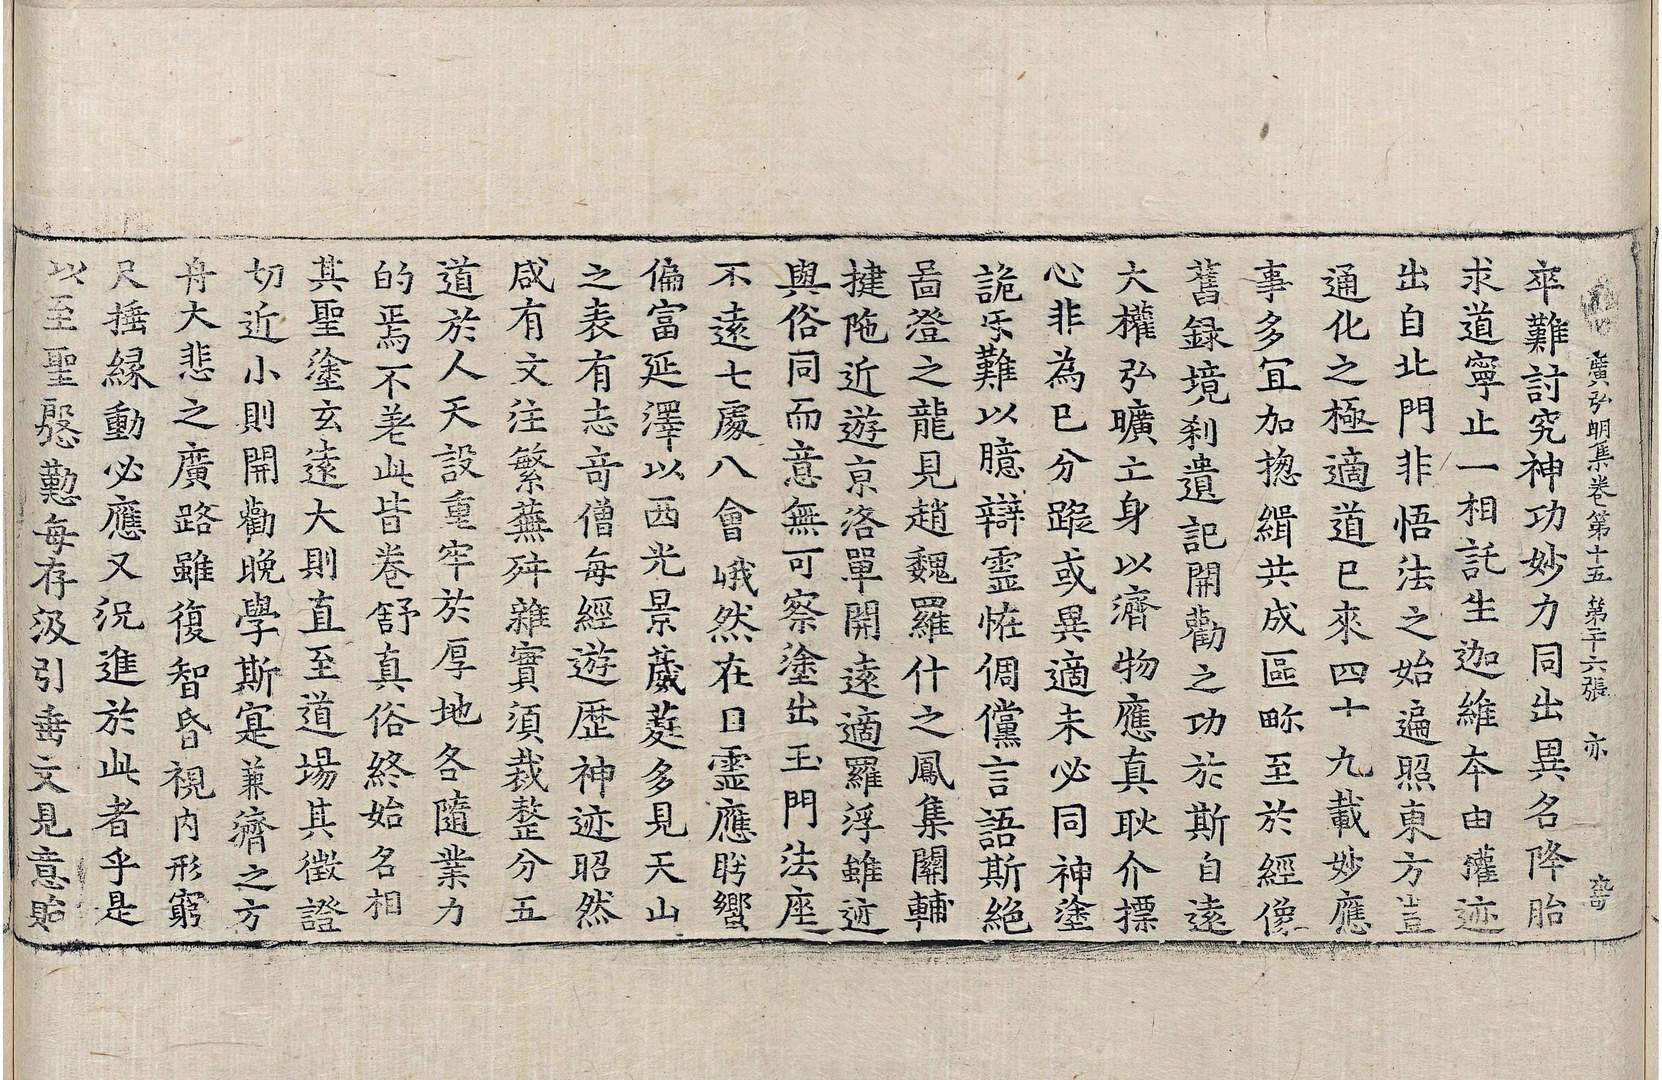 廣弘明集卷第十五 第二十六張 亦
卒難討究神功妙力同出異名降胎
求道寧止一相託生迦維本由權迹
出自北門非悟法之始遍照東方豈
通化之極適道已來四十九載妙應
事多冝加揔緝共成區畛至於經像
舊録境刹遺記開勸之功於斯自遠
大權弘曠亡身以濟物應真耿介標
心非為已分蹤或異適未必同神塗
詭乐難以臆辯靈恠倜儻言語斯絕
啚澄之龍見趙魏羅什之鳳集關輔
揵陁近遊京洛單開遠適羅浮雖迹
與俗同而意無可察塗出玉門法座
不遠七處八會峨然在目靈應肹蠁
偏富延澤以西光景葳蕤多見天山
之表有志奇僧每經遊歷神迹昭然
咸有文注繁蕪舛雜實須裁整分五
道於人天設重牢於厚地各隨業力
的焉不差此皆卷舒真俗終始名相
其聖塗玄遠大則直至道場其徵證
切近小則開勸晚學斯寔兼濟之方
舟大悲之廣路雖復智昏視內形窮
尺捶緣動必應又況進於此者乎是
以至聖慇懃每存汲引垂文見意貽